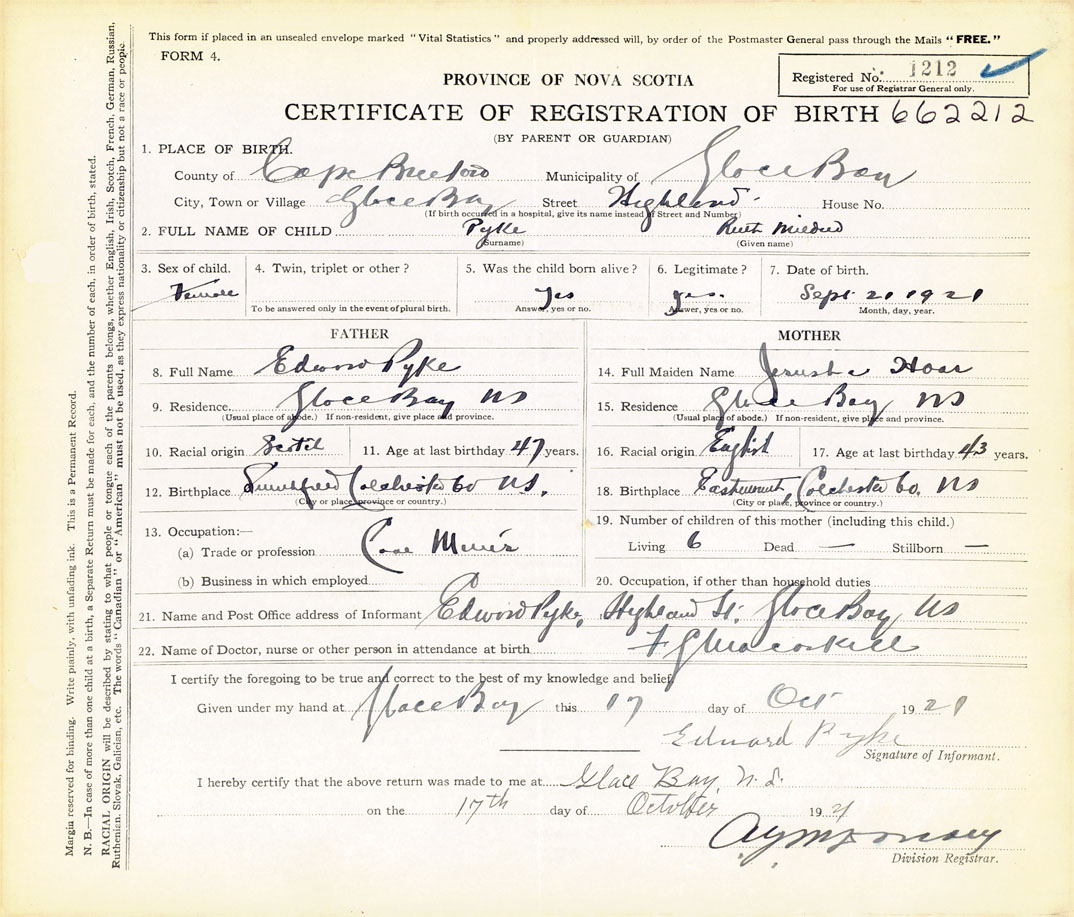 This form if placed in an unsealed envelope marked "Vital Statistics" and properly addressed will, by order of the Postmaster General pass through the Mails "FREE."
FORM 4.
Registered No. 1212
For use of Registrar General only.
PROVINCE OF NOVA SCOTIA
CERTIFICATE OF REGISTRATION OF BIRTH 662212
(BY PARENT OR GUARDIAN)
1. PLACE OF BIRTH.
County of Cape Breton Municipality of Glace Bay
City, Town or Village Glace Bay Street Highland House No.
(If birth occurred in a hospital, give its name instead of Street and Number)
2. FULL NAME OF CHILD Pyke Ruth Mildred
(Surname) (Given name)
3. Sex of child. 4. Twin, triplet or other? 5. Was the child born alive? 6. Legitimate? 7. Date of birth.
Female Yes yes. Sept 21 1921
To be answered only in the event of plural birth. Answer, yes or no. Answer, yes or no. Month, day, year.
FATHER
8. Full Name Edword Pyke
9. Residence Glace Bay NS
(Usual place of abode.) If non-resident, give place and province.
10. Racial origin Scotch 11. Age at last birthday 47 years.
12. Birthplace Colchester Co NS.
(City or place, province or country.)
13. Occupation:—
(a) Trade or profession Coal Miner
(b) Business in which employed
MOTHER
14. Full Maiden Name Jerusha Hoar
15. Residence Glace Bay NS
(Usual place of abode.) If non-resident, give place and province.
16. Racial origin English 17. Age at last birthday 43 years.
18. Birthplace Colchester Co. NS
(City or place, province or country.)
19. Number of children of this mother (including this child.)
Living 6 Dead — Stillborn —
20. Occupation, if other than household duties
21. Name and Post Office address of Informant Edword Pyke, Highland St. Glace Bay NS
22. Name of Doctor, nurse or other person in attendance at birth
I certify the foregoing to be true and correct to the best of my knowledge and belief.
Given under my hand at Glace Bay this 17 day of Oct 1921
Edward Pyke
Signature of Informant.
I hereby certify that the above return was made to me at Glace Bay, N.S.
on the 17th day of October 1921
Division Registrar.
Margin reserved for binding. Write plainly, with unfading ink. This is a Permanent Record.
N. B.—In case of more than one child at a birth, a Separate Return must be made for each, and the number of each, in order of birth, stated.
RACIAL ORIGIN will be described by stating to what people or tongue each of the parents belongs, whether English, Irish, Scotch, French, German, Russian,
Ruthenian, Slovak, Galician, etc. The words "Canadian" or "American" must not be used, as they express nationality or citizenship but not a race or people.